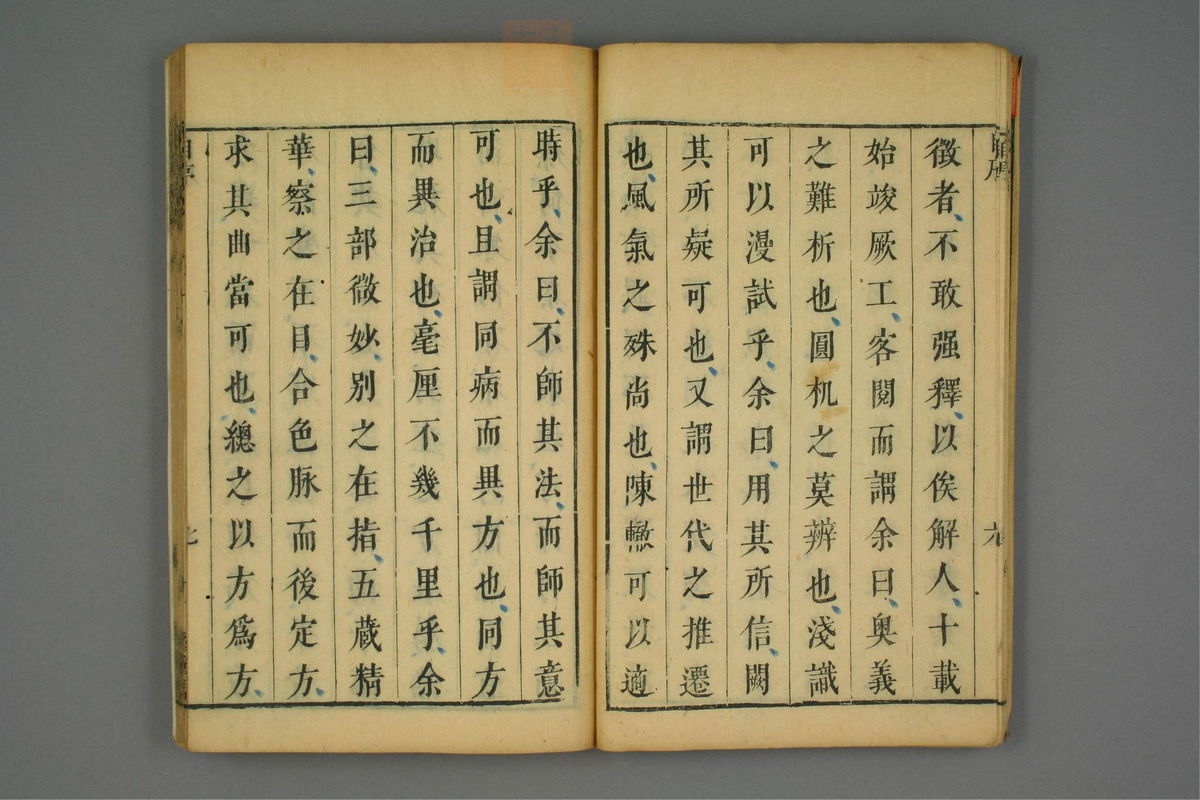 徵者、不敢强釋、以俟解人、十載
始竣厥工、客閱而謂余曰、奥義
之難析也、圓机之莫辨也、淺識
可以漫試乎、余曰、用其所信、闕
其所疑可也、又謂世代之推遷
也、風氣之殊尚也、陳轍可以適
時乎、余曰、不師其法、而師其意
可也、且謂同病而異方也、同方
而異治也、毫厘不幾千里乎、余
曰、三部微妙、别之在指、五蔵精
華、察之在目、合色脉而後定方、
求其曲當可也、總之以方爲方、